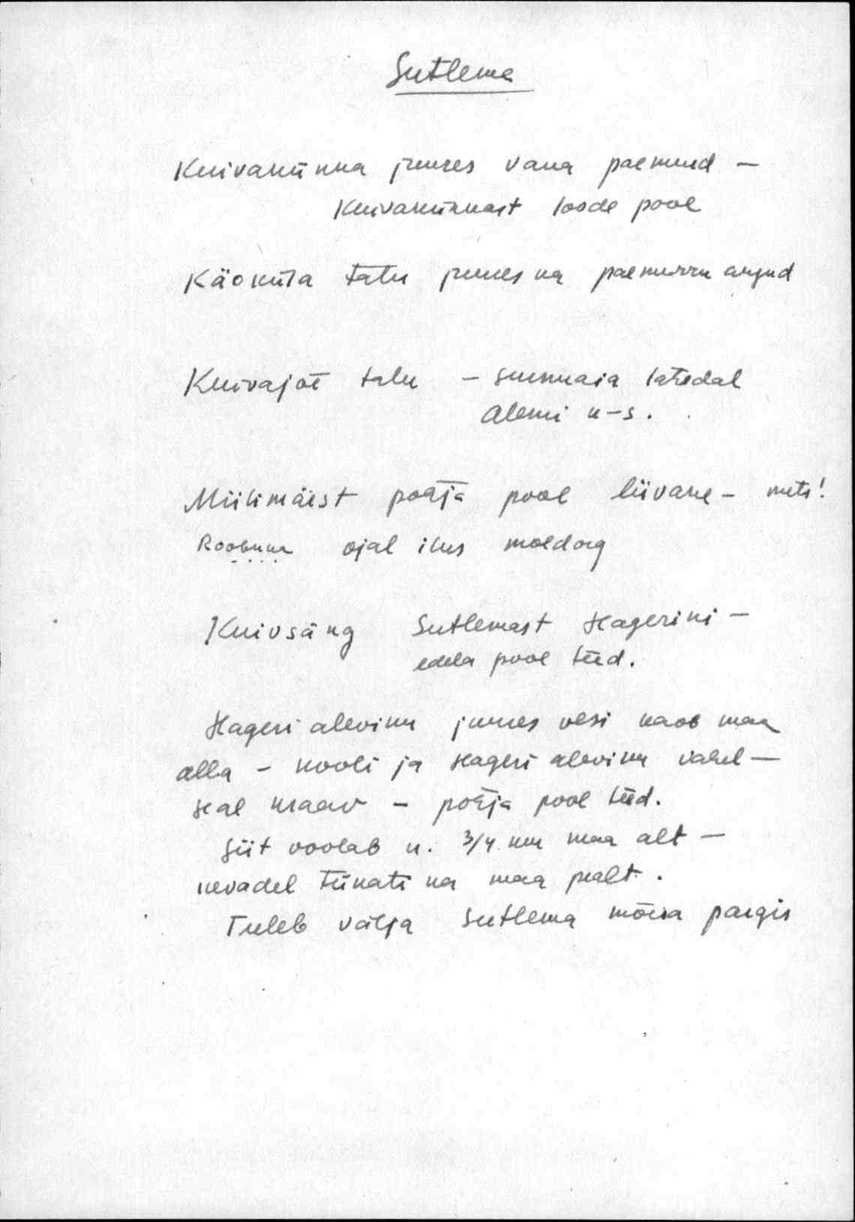 Sutlema
Kuivakünka juures vana paemurd –
Kuivakünkast loode pool
Käoküla talu juures ka paemurru augud
Kuivajõe talu – surnuaia taredal
Alemi k-s.
Miilimäest põhja pool liivane – mets!
ojal ilus moldorg
Kuivsäng Sutlemast Hagerini –
edela pool teed.
Hageri aleviku juures vesi kaob maa
alla – kooli ja Hageri aleviku vahel –
seal kraav – põhja pool teed.
Siit voolab u. 3/4 km maa alt –
kevadel ka maa pealt.
Tuleb välja Sutlema mõisa pargis